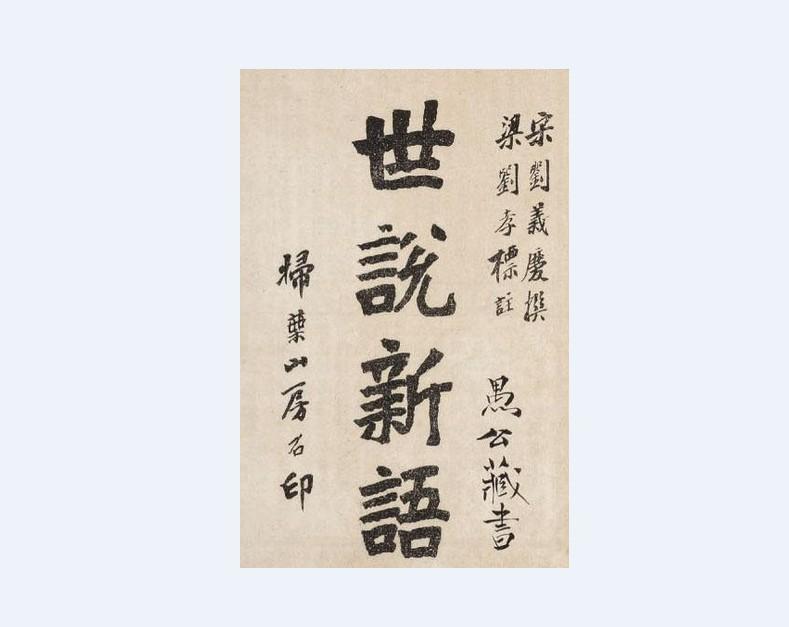 宋劉義慶撰
梁劉孝標註
愚公藏書
世說新語
掃葉山房石印